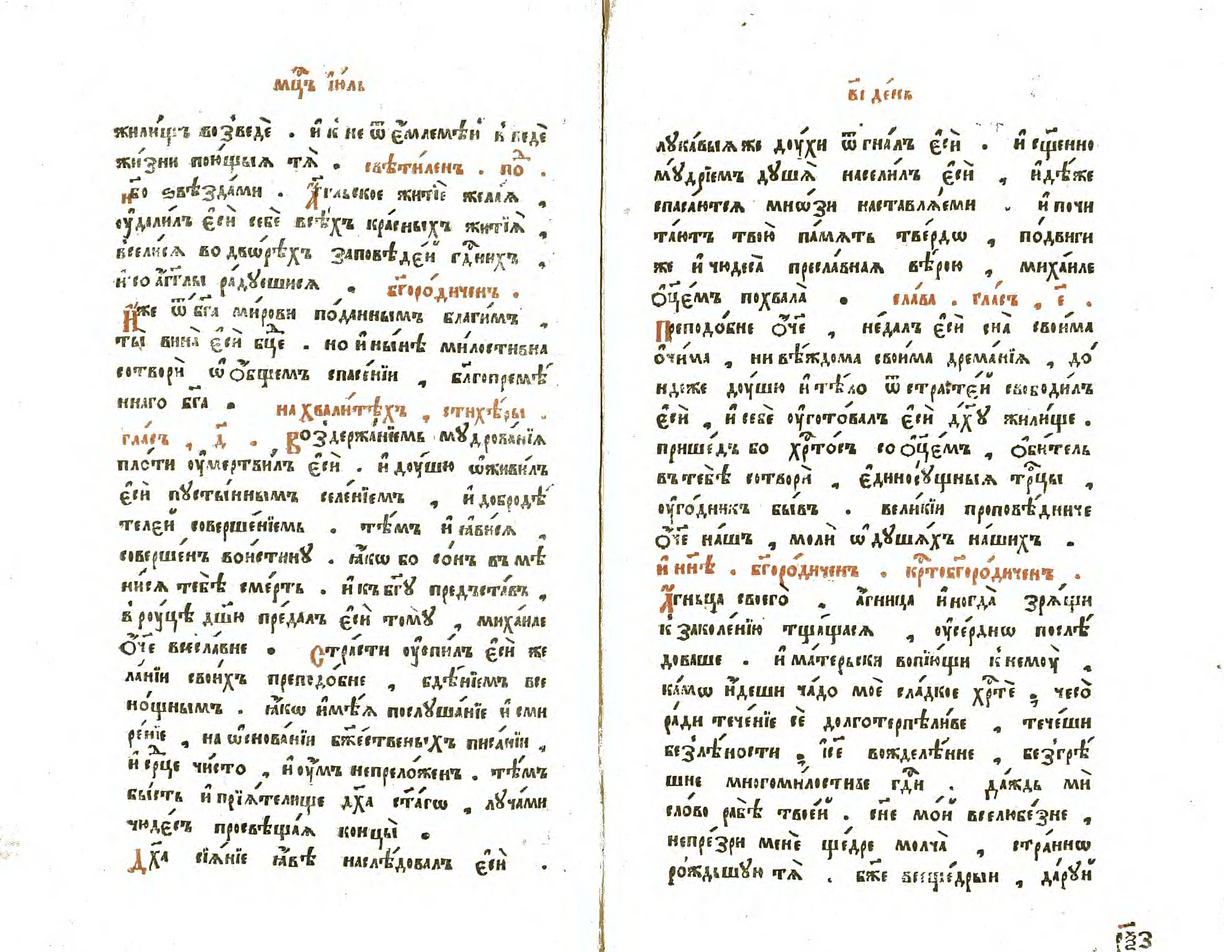 мцⷭ҇ъ і҆ю́ль
жили́щъ возведѐ . и҆ к не ѿе́млемѣй к ведѐ
жи́зни пою́щыѧ тѧ̀ . свѣти́ленъ . поⷣ .
нб҃о ѕвѣзда́ми . А҆́гг҃льское житїѐ жела́ѧ ,
оу҆дали́лъ є҆сѝ себѐ всѣ́хъ кра́сныхъ житїѧ̀ ,
всели́сѧ во дво́рѣхъ за́повѣдей гдⷭ҇нихъ ,
и҆ со а҆́гг҃лы ра́дуешисѧ . бг҃оро́диченъ .
И҆́же ѿ бг҃а ми́рови по́даннымъ благи́мъ ,
ты̀ вина̀ є҆сѝ бцⷣе . но и҆ ны́нѣ ми́лостивна
сотворѝ ѡ҆ о҆́бщемъ спасе́нїи , бл҃гопремѣ́
ннаго бг҃а . на хвали́тѣхъ , стихѣ́ры .
гла́съ , д҃ . Воздержа́нїемъ мꙋдрова́нїѧ
пло́ти оу҆мертви́лъ є҆сѝ . и҆ доу́шю ѡ҆живи́лъ
є҆сѝ пꙋсты́ннымъ селе́нїемъ , и҆ доброде́
телей соверше́нїемь . тѣ́мъ и҆ ꙗ҆ви́сѧ
соверше́нъ вои́стинꙋ . ꙗ҆́кѡ бо со́нъ въмѣ
ни́сѧ тебѣ̀ сме́рть . и҆ къ бг҃ꙋ предъста́въ ,
в роу́цѣ дш҃ю пре́далъ є҆сѝ томꙋ̀ , миха́иле
ѻ҆́ч҃е всесла́вне . Стра́сти оу҆спи́лъ є҆сѝ же
ла́нїи свои́хъ преподо́бне , бдѣ́нїемъ все
но́щнымъ . ꙗ҆́кѡ и҆мѣ́ѧ послꙋша́нїе и҆ сми
ре́нїе , на ѡ҆снова́нїи бж҃е́ственыхъ писа́нїи ,
и҆ срⷣце чи́сто , и҆ оу҆́мъ непрело́женъ . тѣ́мъ
бы́сть и҆ прїѧ́телище дх҃а ст҃а́гѡ , лꙋча́ми
чюде́съ просвѣща́ѧ концы̀ .
Дх҃а сїѧ́нїе ꙗ҆́вѣ наслѣ́довалъ є҆сѝ .
в҃і де́нь
лꙋка́выѧ же доу́хи ѿгна́лъ є҆сѝ . и҆ сщ҃енно
мꙋ́дрїемъ дꙋшѧ̀ насели́лъ є҆сѝ , и҆дѣ́же
спаса́ютсѧ мно́зи наставлѧ́еми . и҆ почи
та́ютъ твою̀ па́мѧть тве́рдѡ , по́двиги
же и҆ чюдеса̀ пресла́внаѧ вѣ́рою , миха́иле
ѻ҆ц҃е́мъ похвала̀ . сла́ва . гла́съ , є҃ .
Преподо́бне ѻ҆́ч҃е , не да́лъ є҆сѝ сна̀ свои́ма
ѻ҆чи́ма , ни вѣ́ждома свои́ма дрема́нїѧ , до́
ндеже доу́шю и҆ тѣ́ло ѿ страсте́й свободи́лъ
є҆сѝ , и҆ себѐ оу҆гото́валъ є҆сѝ дх҃ꙋ жили́ще .
прише́дъ бо хрⷭ҇то́съ со ѻ҆ц҃е́мъ , ѻ҆би́тель
въ тебѣ̀ сотворѝ , є҆диносꙋ́щныѧ трⷪ҇цы ,
оу҆го́дникъ бы́въ . вели́кїи проповѣ́дниче
ѻ҆́ч҃е на́шъ , молѝ ѡ҆ дꙋша́хъ на́шихъ .
и҆ нн҃ѣ . бг҃оро́диченъ . крⷭ҇тобг҃оро́диченъ .
А҆́гньца своего̀ , а҆́гница и҆ногда̀ зрѧ́щи
к заколе́нїю тща́щасѧ , оу҆се́рднѡ послѣ́
доваше . и҆ ма́терьски вопїю́щи к немоу̀ ,
ка́мѡ и҆́деши ча́до моѐ сла́дкое хрⷭ҇тѐ ; чесо̀
ра́ди тече́нїе сѐ долготерпѣ́ливе , тече́ши
безлѣ́ности ; і҆с҃е вожделѣ́нне , безгрѣ́
шне многоми́лостиве гдⷭ҇и . да́ждь мѝ
сло́во рабѣ̀ твое́й . сн҃е мо́й вселюбе́зне ,
непре́зри менѐ ще́дре молча̀ , стра́ннѡ
ро́ждьшꙋю тѧ̀ . бж҃е всеще́дрыи , да́рꙋй